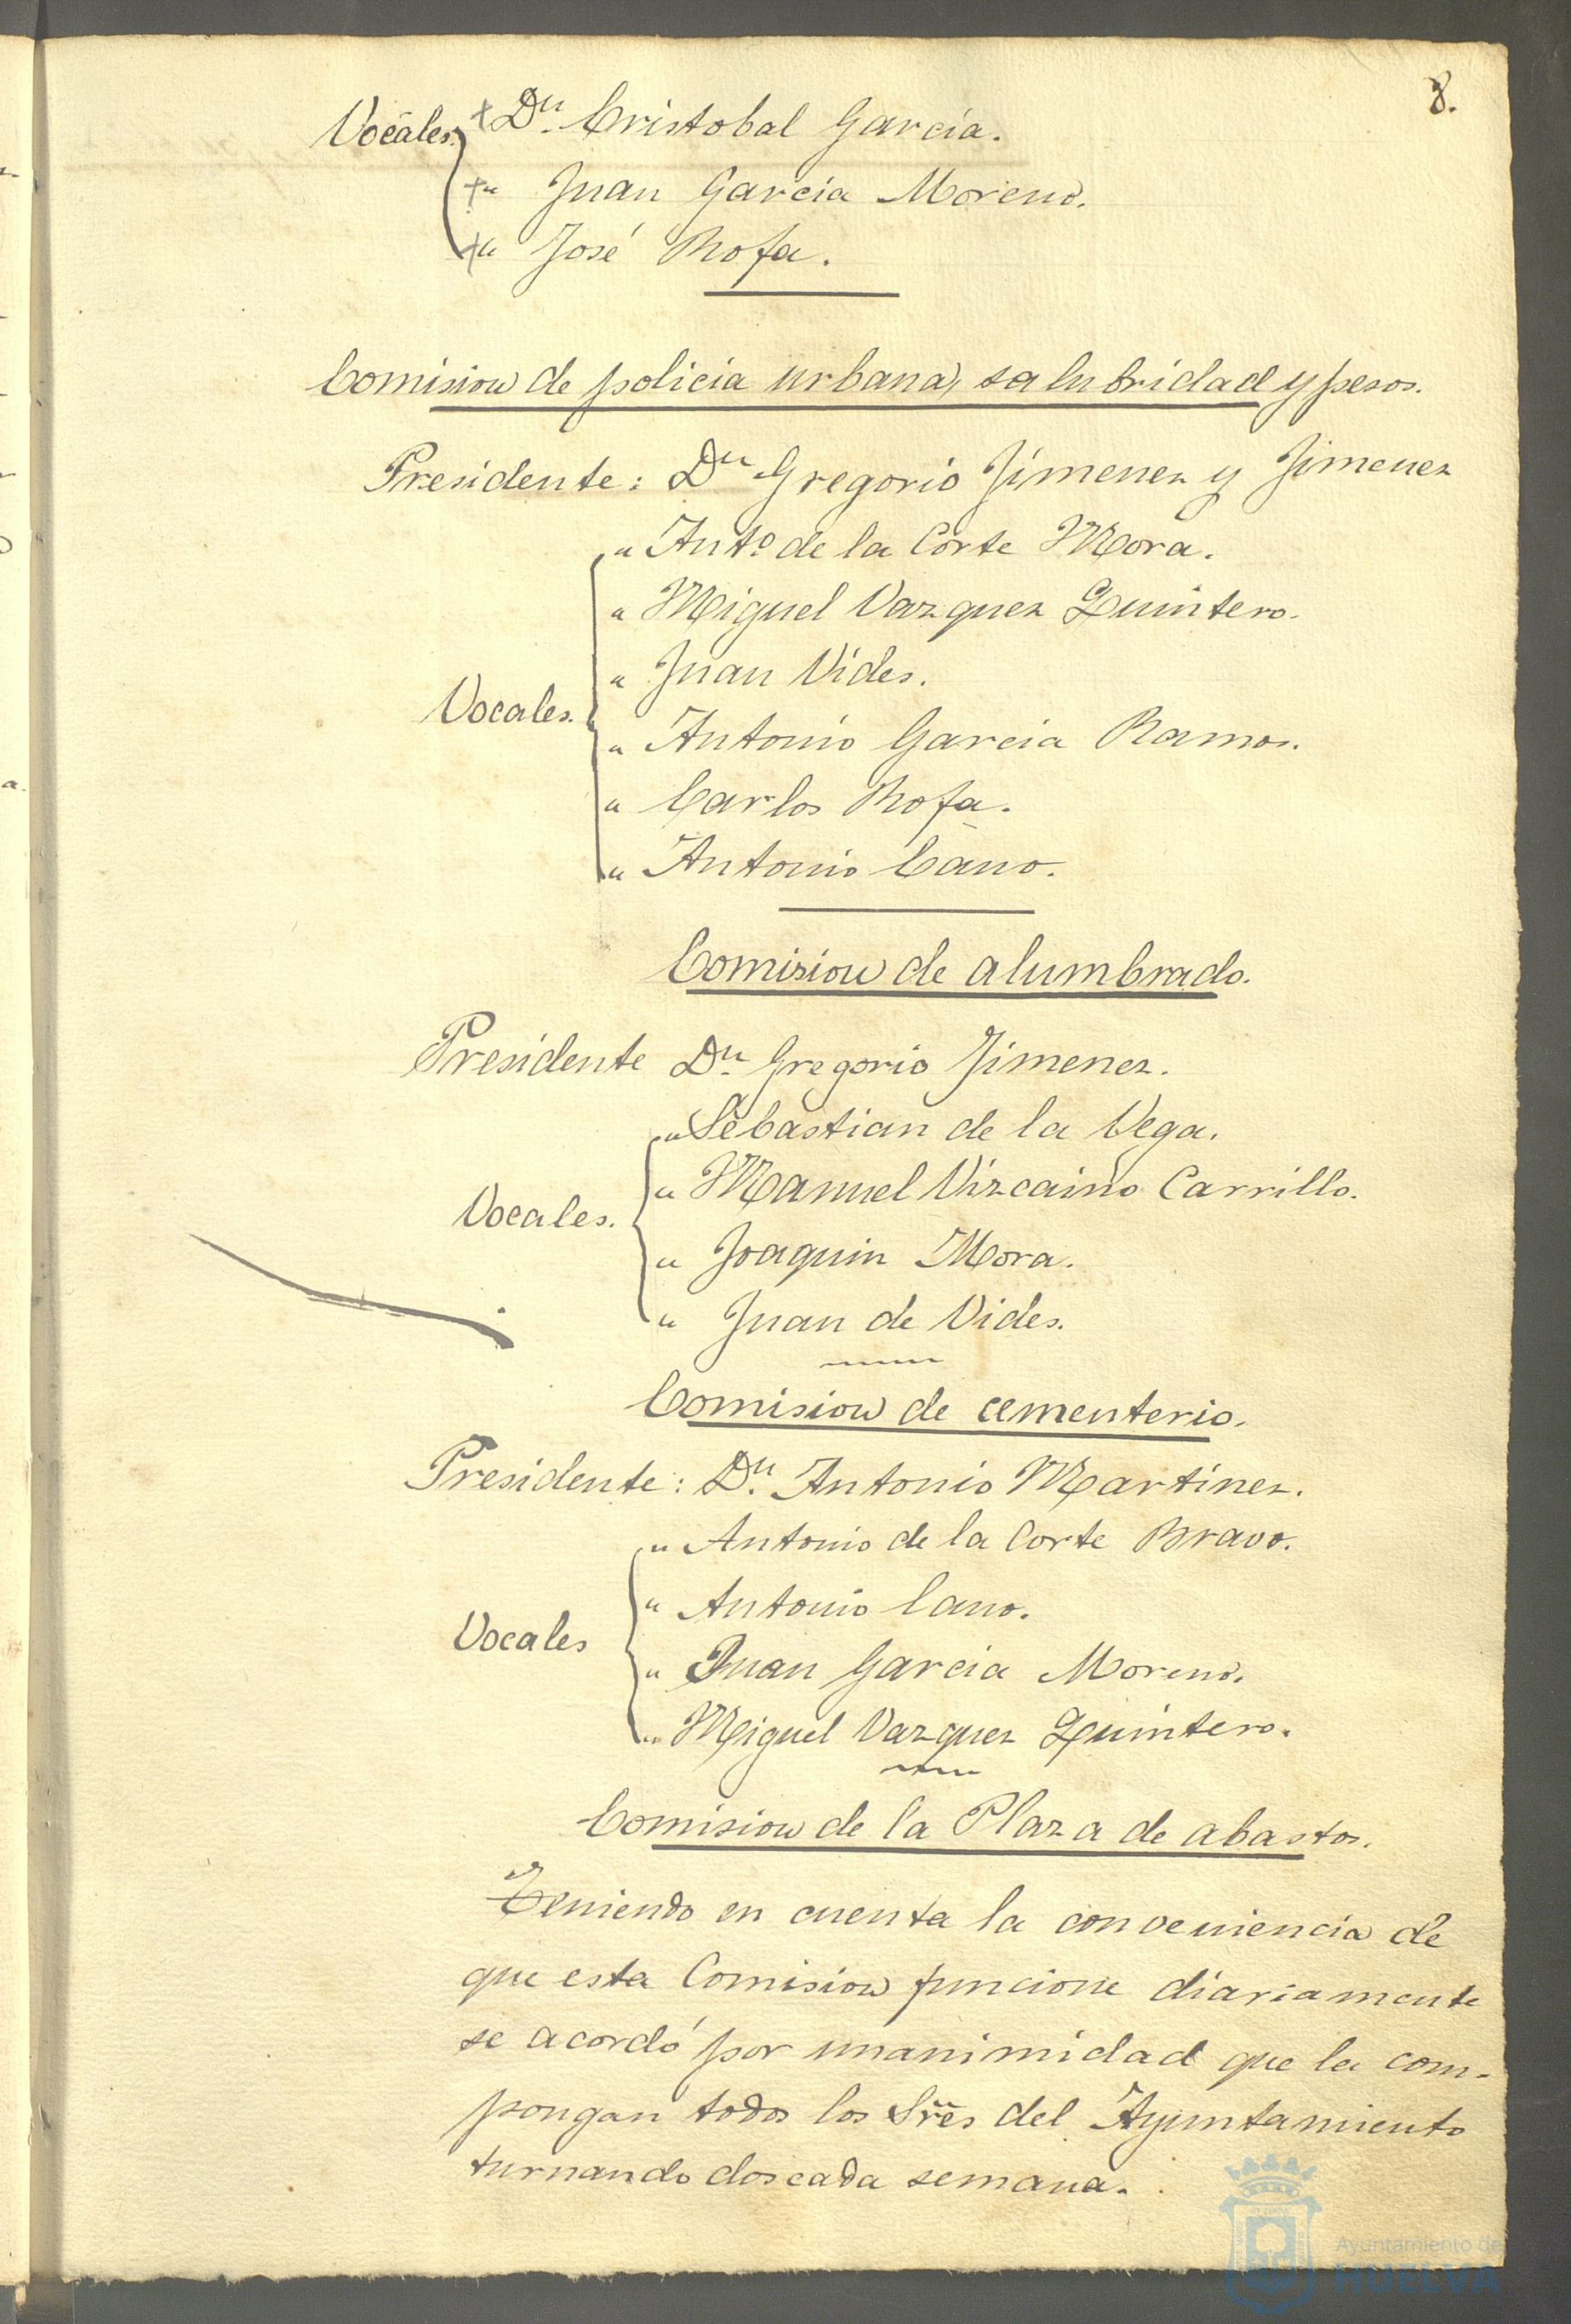 8.
Vocales. + Dn. Cristobal Garcia.
+ " Juan Garcia Moreno.
+ " José Rofa.
Comision de policia urbana, salubridad y pesos.
Presidente: Dn Gregorio Jimenez y Jimenez
" Anto. de la Corte Mora.
" Miguel Vazquez Quintero.
" Juan Vides.
Vocales.
" Antonio Garcia Ramos.
" Carlos Rofa.
" Antonio Cano.
Comision de alumbrado.
Presidente Dn. Gregorio Jimenez.
" Sebastian de la Vega.
" Manuel Vizcaino Carrillo.
Vocales.
" Joaquin Mora.
" Juan de Vides.
Comision de cementerio.
Presidente: Dn. Antonio Martinez.
" Antonio de la Corte Bravo.
" Antonio Cano.
Vocales
" Juan Garcia Moreno.
" Miguel Vazquez Quintero.
Comision de la Plaza de abastos.
Teniendo en cuenta la conveniencia de
que esta Comision funcione diariamente
se acordó por unanimidad que la com-
pongan todos los Sres del Ayuntamiento
turnando dos cada semana.
Ayuntamiento de
HUELVA